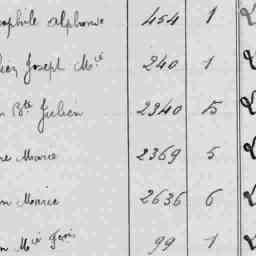 ophile Alphonse 454 1
Joseph Mie 240 1
Bte Julien 2340 5
ne Marie 2369 5
n Marie 2636 6
n Mie 99 1